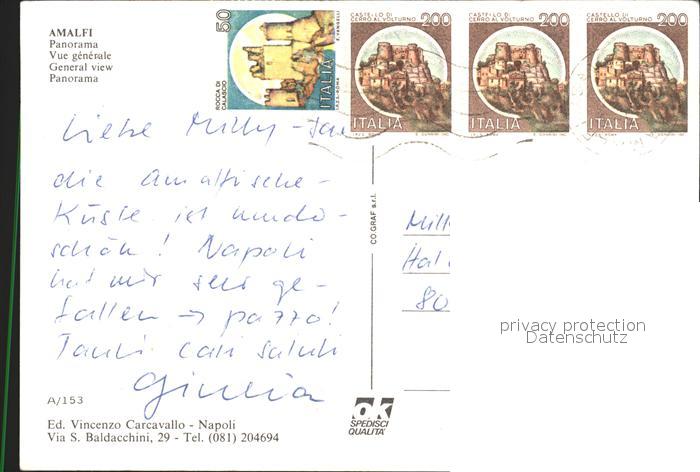 AMALFI
Panorama
Vue générale
General view
Panorama
50
ROCCA DI
CALASCIO
ITALIA
CASTELLO DI
CERRO AL VOLTURNO
200
ITALIA
CASTELLO DI
CERRO AL VOLTURNO
200
ITALIA
CASTELLO DI
CERRO AL VOLTURNO
200
ITALIA
Liebe Milly-
die Amalfische-
Küste ist wunder-
schön! Napoli
hat mir sehr ge-
fallen → pazzo!
Tanti cari saluti
Giulia
CO.GRAF s.r.l.
Mill
Ital
80
privacy protection
Datenschutz
A/153
Ed. Vincenzo Carcavallo - Napoli
Via S. Baldacchini, 29 - Tel. (081) 204694
ok
SPEDISCI
QUALITA'